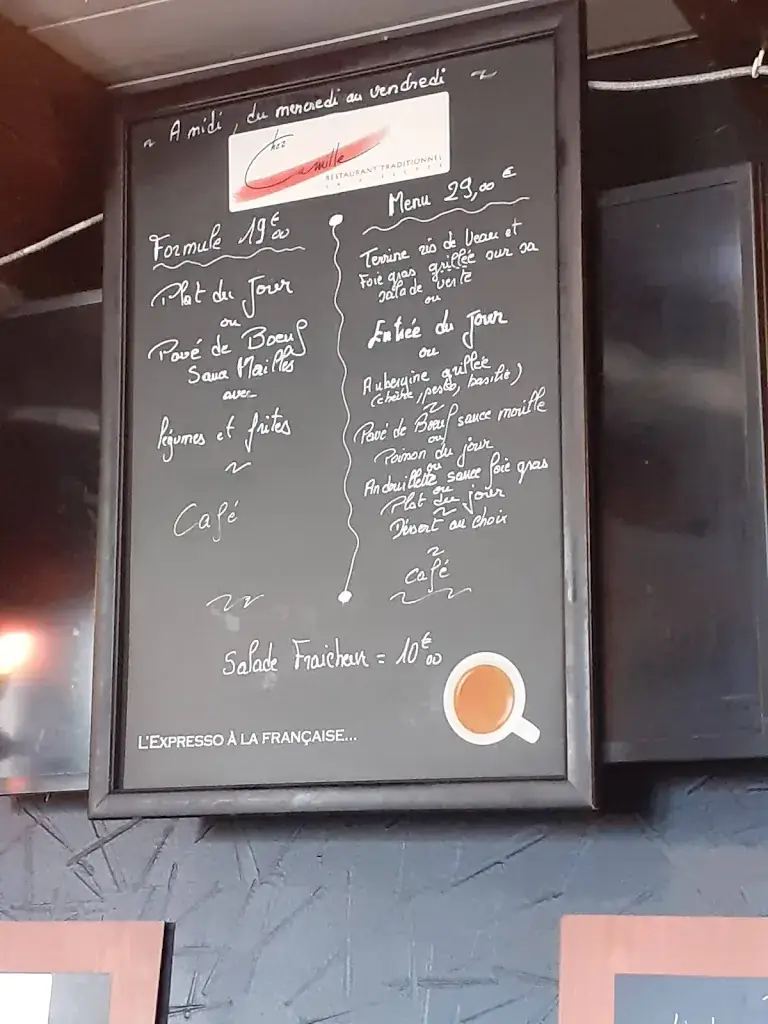 ~ A midi, du mercredi au vendredi ~
Chez
Camille
RESTAURANT TRADITIONNEL
Formule 19€00
Plat du Jour
ou
Pavé de Boeuf
avec
légumes et frites
~
Café
Menu 29,00 €
Terrine ris de Veau et
Foie gras grillée sur sa
salade verte
ou
Entrée du Jour
ou
Aubergine grillée
(chèvre, pesto, basilic)
~
Pavé de Boeuf sauce morille
ou
Poisson du jour
ou
Andouillette sauce foie gras
ou
Plat du jour
~
Désert au choix
~
Café
Salade Fraicheur = 10€00
L'EXPRESSO À LA FRANÇAISE...